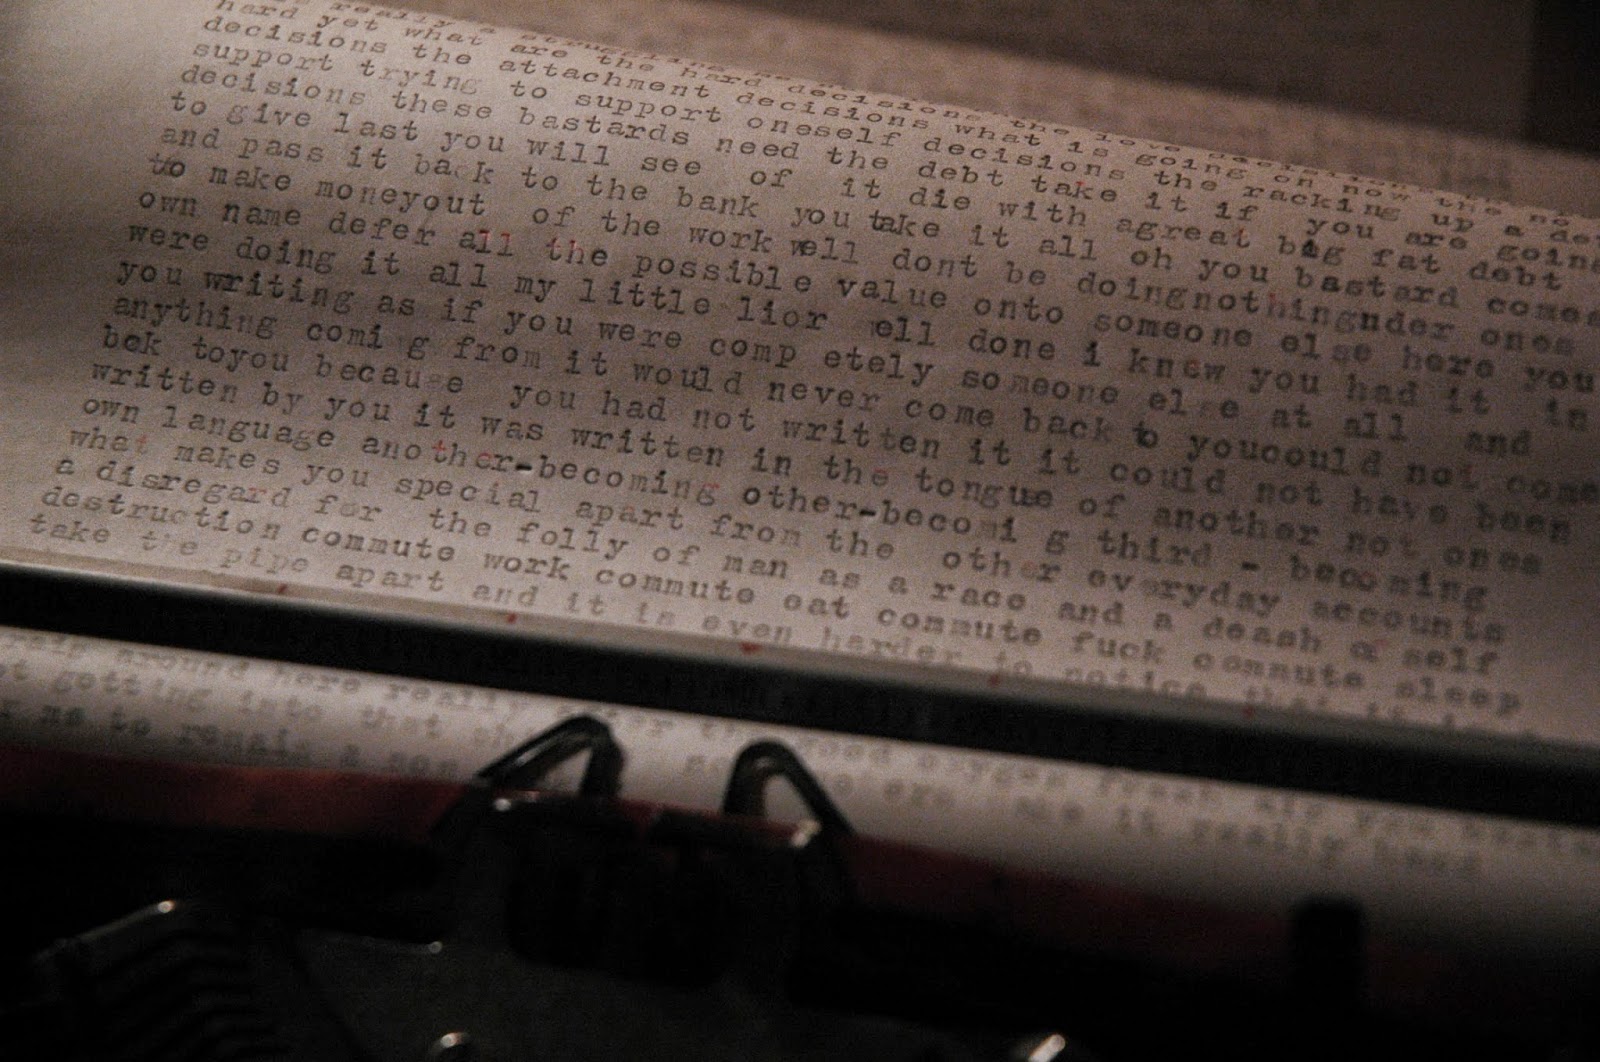 really a
hard yet what are the hard decisions the love
decisions the attachment decisions what is going on now the no
support trying to support oneself decisions the racking up a de
decisions these bastards need the debt take it if you are going
to give last you will see of it die with agreat big fat debt
and pass it back to the bank you take it all oh you bastard comes
to make moneyout of the work well dont be doingnothingnder ones
own name defer all the possible value onto someone else here you
were doing it all my little lior ell done i knew you had it in
you writing as if you were comp etely someone el e at all and
anything comi g from it would never come back to youcould not come
bck toyou because you had not written it it could not have been
written by you it was written in the tongue of another not ones
own language another-becoming other-becomi g third - becoming
what makes you special apart from the other everyday accounts
a disregard for the folly of man as a race and a deash a self
destruction commute work commute eat commute fuck commute sleep
take the pipe apart and it is even harder to notice that it
around here really good oxygen fresh air you
getting into that
to remain a it really